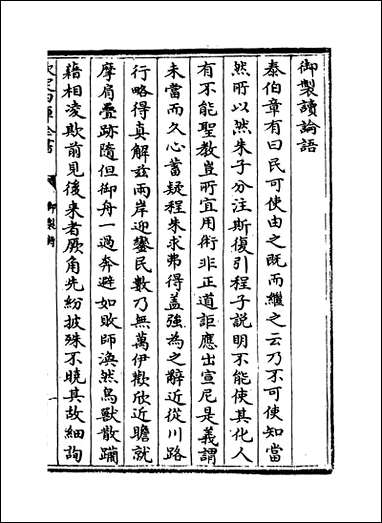 御製讀論語
泰伯章有曰民可使由之既而繼之云乃不可使知當
然所以然朱子分注斯復引程子説明不能使其化人
有不能聖教豈所宜用術非正道詎應出宣尼是義謂
未當而久心蓄疑程朱求弗得蓋強為之辭近從川路
行略得真解兹兩岸迎鑾民數乃無萬伊歡欣近瞻就
摩肩疊跡隨但御舟一過奔避如敗師渙然鳥獸散躪
藉相凌欺前見後來者厥角先紛披殊不曉其故細詢
欽定四庫全書
御製詩
一